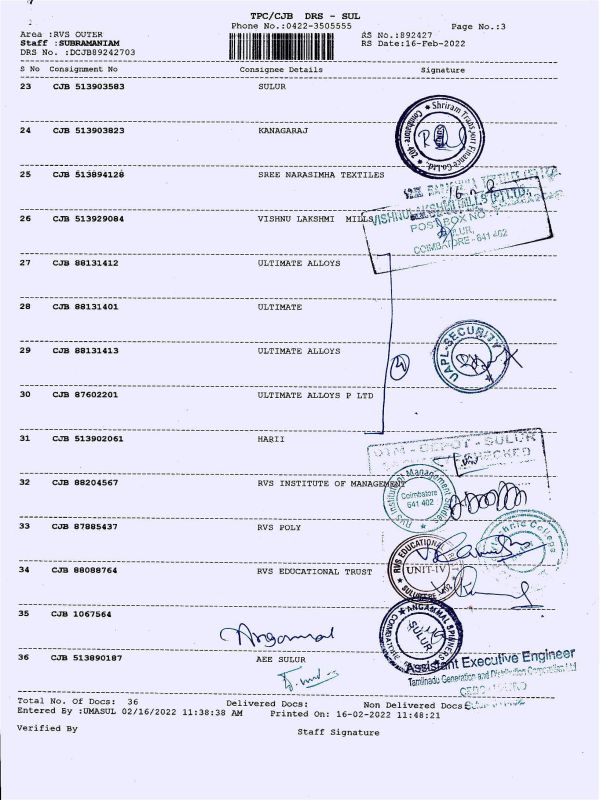 TPC/CJB DRS - SUL
Phone No.:0422-3505555
Page No.:3
Area :RVS OUTER
RS No.:892427
Staff :SUBRAMANIAM
RS Date:16-Feb-2022
DRS No. :DCJB89242703
S No Consignment No Consignee Details Signature
23 CJB 513903583 SULUR
Shriram Transport Finance Co.Ltd.
Coimbatore
24 CJB 513903823 KANAGARAJ
25 CJB 513894128 SREE NARASIMHA TEXTILES
26 CJB 513929084 VISHNU LAKSHMI MILLS
VISHNU LAKSHMI MILLS (P) LTD.
POST BOX NO.
SULUR,
COIMBATORE - 641 402
27 CJB 88131412 ULTIMATE ALLOYS
28 CJB 88131401 ULTIMATE
29 CJB 88131413 ULTIMATE ALLOYS
UAPL-SECURITY
4
30 CJB 87602201 ULTIMATE ALLOYS P LTD
31 CJB 513902061 HARII
DEPOT - SULUR
CHECKED
32 CJB 88204567 RVS INSTITUTE OF MANAGEMENT
RVS Institute of Management Studies
Coimbatore
641 402
33 CJB 87885437 RVS POLY
34 CJB 88088764 RVS EDUCATIONAL TRUST
RVS EDUCATIONAL
UNIT-IV
35 CJB 1067564
Angammal
ANGAMMAL SPINNERS
SULUR
36 CJB 513890187 AEE SULUR
Assistant Executive Engineer
Tamilnadu Generation and Distribution Corporation Ltd
Total No. Of Docs: 36 Delivered Docs: Non Delivered Docs:
Entered By :UMASUL 02/16/2022 11:38:38 AM Printed On: 16-02-2022 11:48:21
Verified By Staff Signature